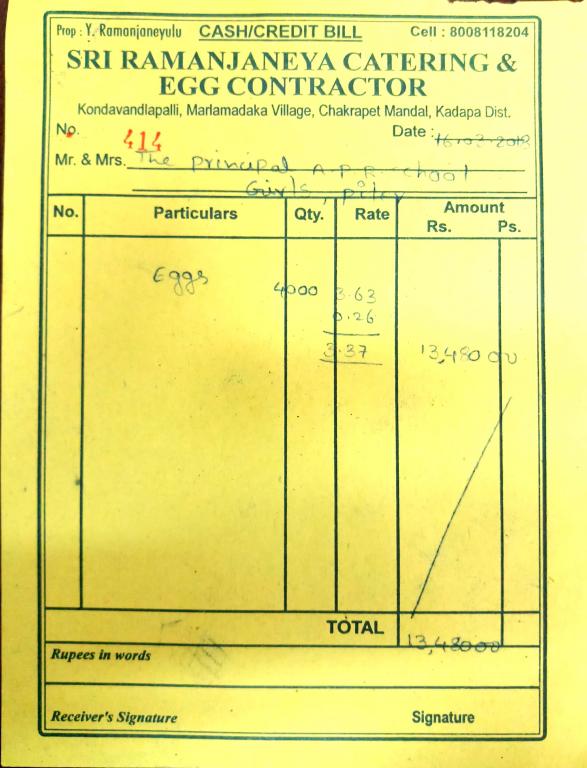 Prop : Y. Ramanjaneyulu CASH/CREDIT BILL Cell : 8008118204
SRI RAMANJANEYA CATERING &
EGG CONTRACTOR
Kondavandlapalli, Marlamadaka Village, Chakrapet Mandal, Kadapa Dist.
No. 414 Date : 16-03-2018
Mr. & Mrs. The principal A.P.R. chool
Girls, piler
No. Particulars Qty. Rate Amount
Rs. Ps.
Eggs 4000 3.63
0.26
3.37 13,480 00
TOTAL 13,480 00
Rupees in words
Receiver's Signature Signature